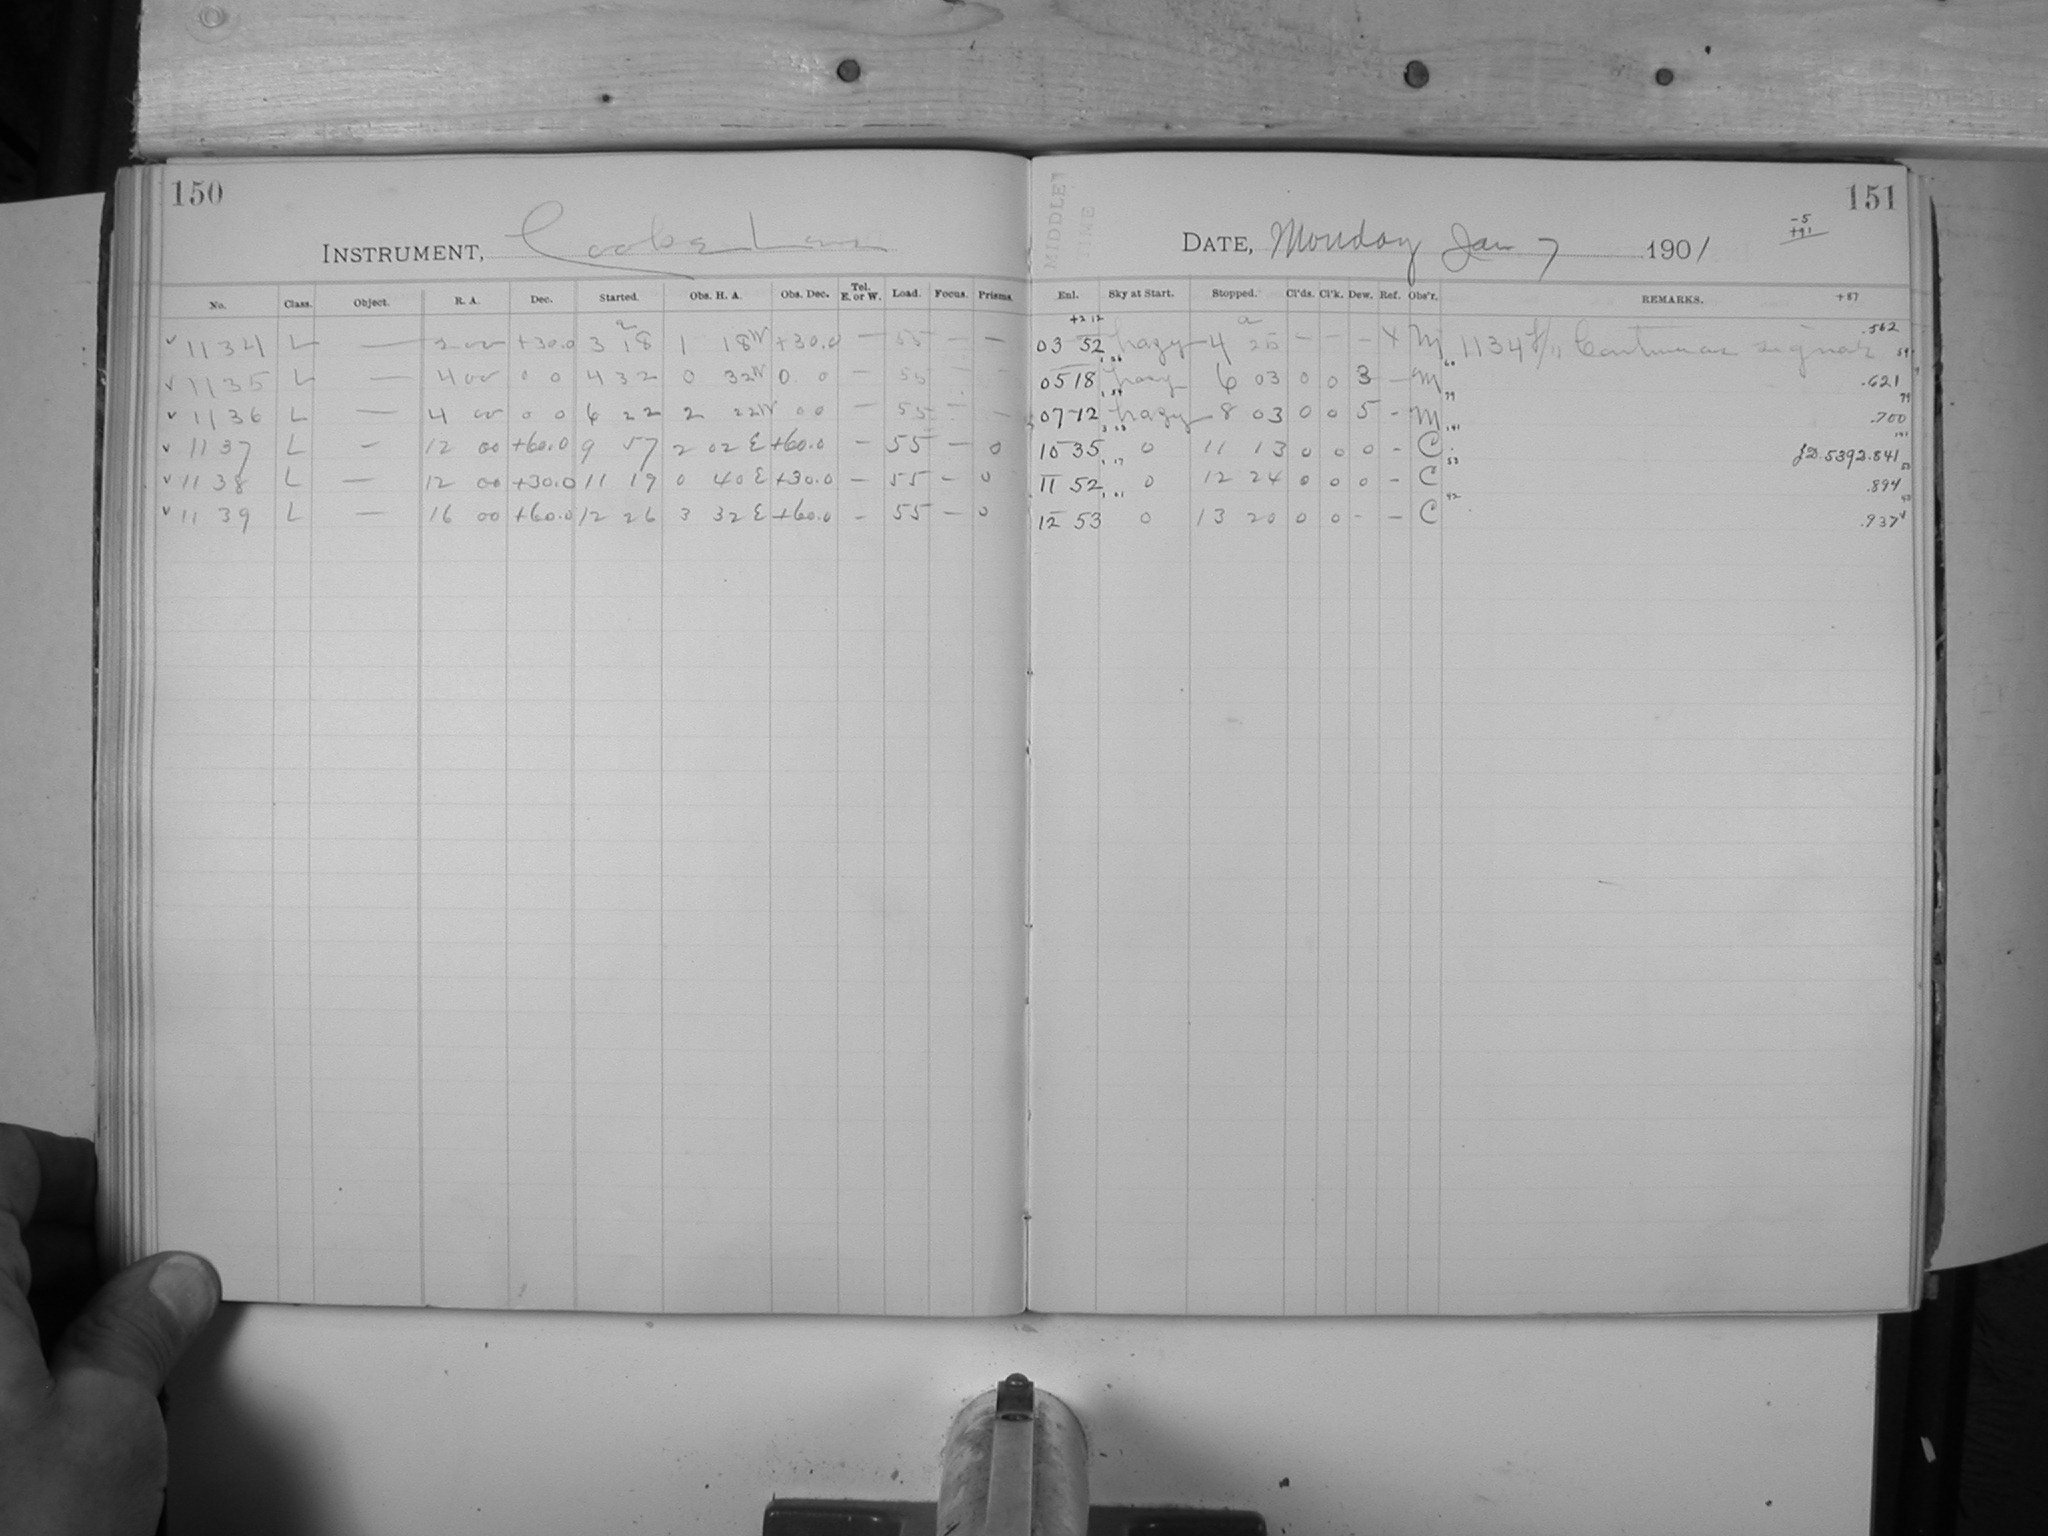 150
INSTRUMENT, Cooke Lens
No. Class. Object. R. A. Dec. Started. Obs. H. A. Obs. Dec. Tel. E. or W. Load. Focus. Prisms.
✓ 1134 L — 2 00 +30.0 3 18 1 18W +30.0 — 55 — —
✓ 1135 L — 4 00 0 0 4 32 0 32W 0 0 — 55 — —
✓ 1136 L — 4 00 0 0 6 22 2 22W 0 0 — 55 — —
✓ 1137 L — 12 00 +60.0 9 57 2 02 E +60.0 — 55 — 0
✓ 1138 L — 12 00 +30.0 11 19 0 40 E +30.0 — 55 — 0
✓ 1139 L — 16 00 +60.0 12 26 3 32 E +60.0 — 55 — 0
151
MIDDLE TIME
-5
+91
DATE, Monday Jan 7 1901
Enl. Sky at Start. Stopped. Cl'ds. Cl'k. Dew. Ref. Obs'r. REMARKS. +87
+2 12
03 52 hazy 4 25 — — — X M 1134 Continuous signal .562
05 18 hazy 6 03 0 0 3 — M .621
07 12 hazy 8 03 0 0 5 - M .700
10 35 0 11 13 0 0 0 - C J.D. 5392.841
11 52 0 12 24 0 0 0 - C .894
12 53 0 13 20 0 0 - - C .937